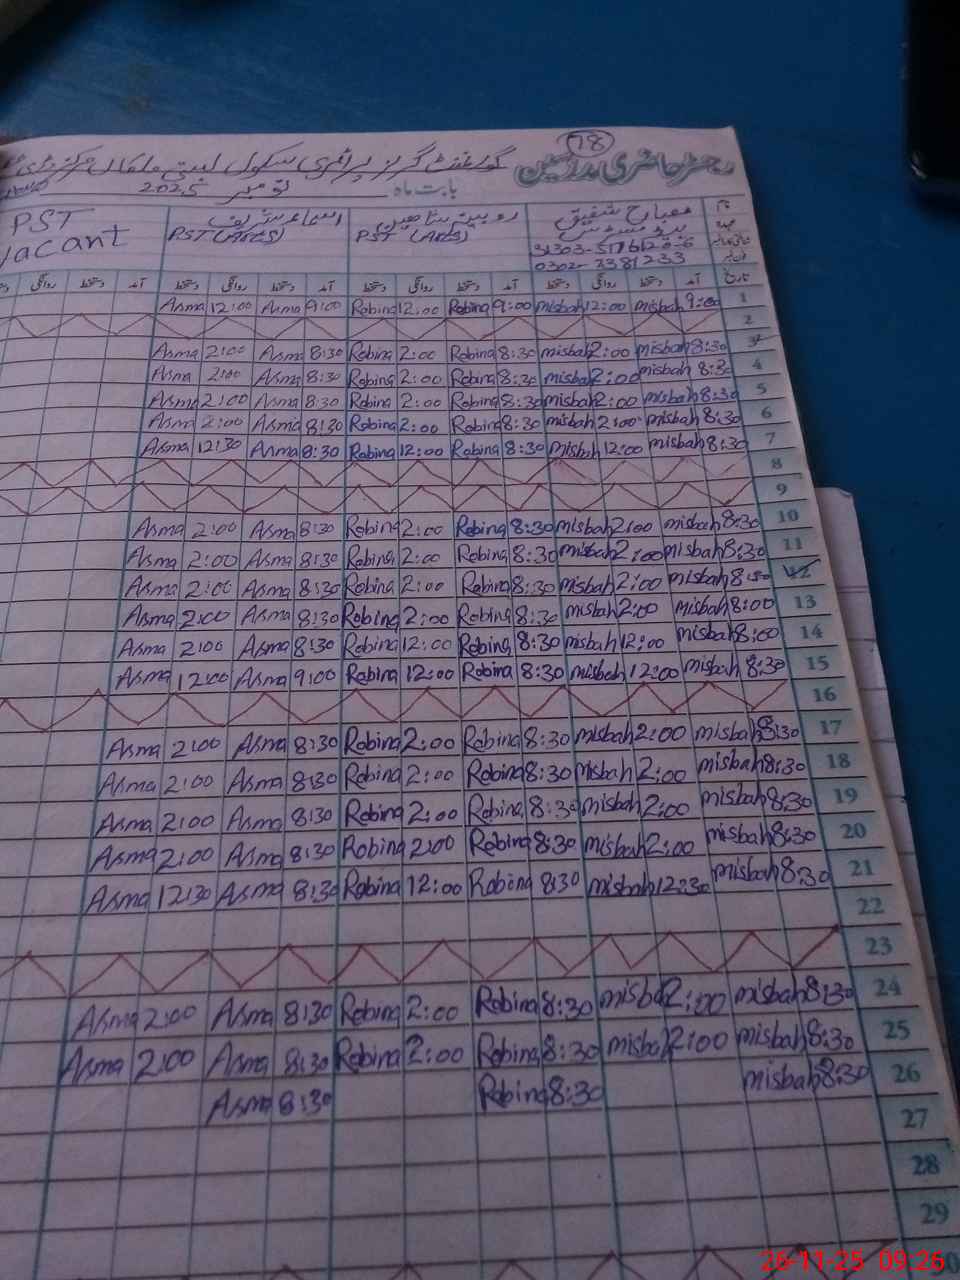 78
رجسٹر حاضری مدرسین گورنمنٹ گرلز پرائمری سکول
بابت ماہ نومبر 2025
نام مصباح شفیق روبینہ شاہین اسماء شریف PST
PST (ARTS) PST (ARTS) vacant
31303-5176120-6
0302-7381233
تاریخ آمد دستخط روانگی دستخط آمد دستخط روانگی دستخط آمد دستخط روانگی دستخط آمد دستخط روانگی
Asma 12:00 Asma 9:00 Robina 12:00 Robina 9:00 misbah 12:00 misbah 9:00 1
2
Asma 2:00 Asma 8:30 Robina 2:00 Robina 8:30 misbah 2:00 misbah 8:30 3
Asma 2:00 Asma 8:30 Robina 2:00 Robina 8:30 misbah 2:00 misbah 8:30 4
Asma 2:00 Asma 8:30 Robina 2:00 Robina 8:30 misbah 2:00 misbah 8:30 5
Asma 2:00 Asma 8:30 Robina 2:00 Robina 8:30 misbah 2:00 misbah 8:30 6
Asma 12:30 Asma 8:30 Robina 12:00 Robina 8:30 misbah 12:00 misbah 8:30 7
8
9
Asma 2:00 Asma 8:30 Robina 2:00 Robina 8:30 misbah 2:00 misbah 8:30 10
Asma 2:00 Asma 8:30 Robina 2:00 Robina 8:30 misbah 2:00 misbah 8:30 11
Asma 2:00 Asma 8:30 Robina 2:00 Robina 8:30 misbah 2:00 misbah 12
Asma 2:00 Asma 8:30 Robina 2:00 Robina 8:30 misbah 2:00 misbah 8:00 13
Asma 2:00 Asma 8:30 Robina 12:00 Robina 8:30 misbah 12:00 misbah 8:00 14
Asma 12:00 Asma 9:00 Robina 12:00 Robina 8:30 misbah 12:00 misbah 8:30 15
16
Asma 2:00 Asma 8:30 Robina 2:00 Robina 8:30 misbah 2:00 misbah 8:30 17
Asma 2:00 Asma 8:30 Robina 2:00 Robina 8:30 misbah 2:00 misbah 8:30 18
Asma 2:00 Asma 8:30 Robina 2:00 Robina 8:30 misbah 2:00 misbah 8:30 19
Asma 2:00 Asma 8:30 Robina 2:00 Robina 8:30 misbah 2:00 misbah 8:30 20
Asma 12:30 Asma 8:30 Robina 12:00 Robina 8:30 misbah 12:30 misbah 8:30 21
22
23
Asma 2:00 Asma 8:30 Robina 2:00 Robina 8:30 misba 2:00 misbah 8:30 24
Asma 2:00 Asma 8:30 Robina 2:00 Robina 8:30 misba 2:00 misbah 8:30 25
Asma 8:30 Robina 8:30 misbah 8:30 26
27
28
29
26-11-25 09:26